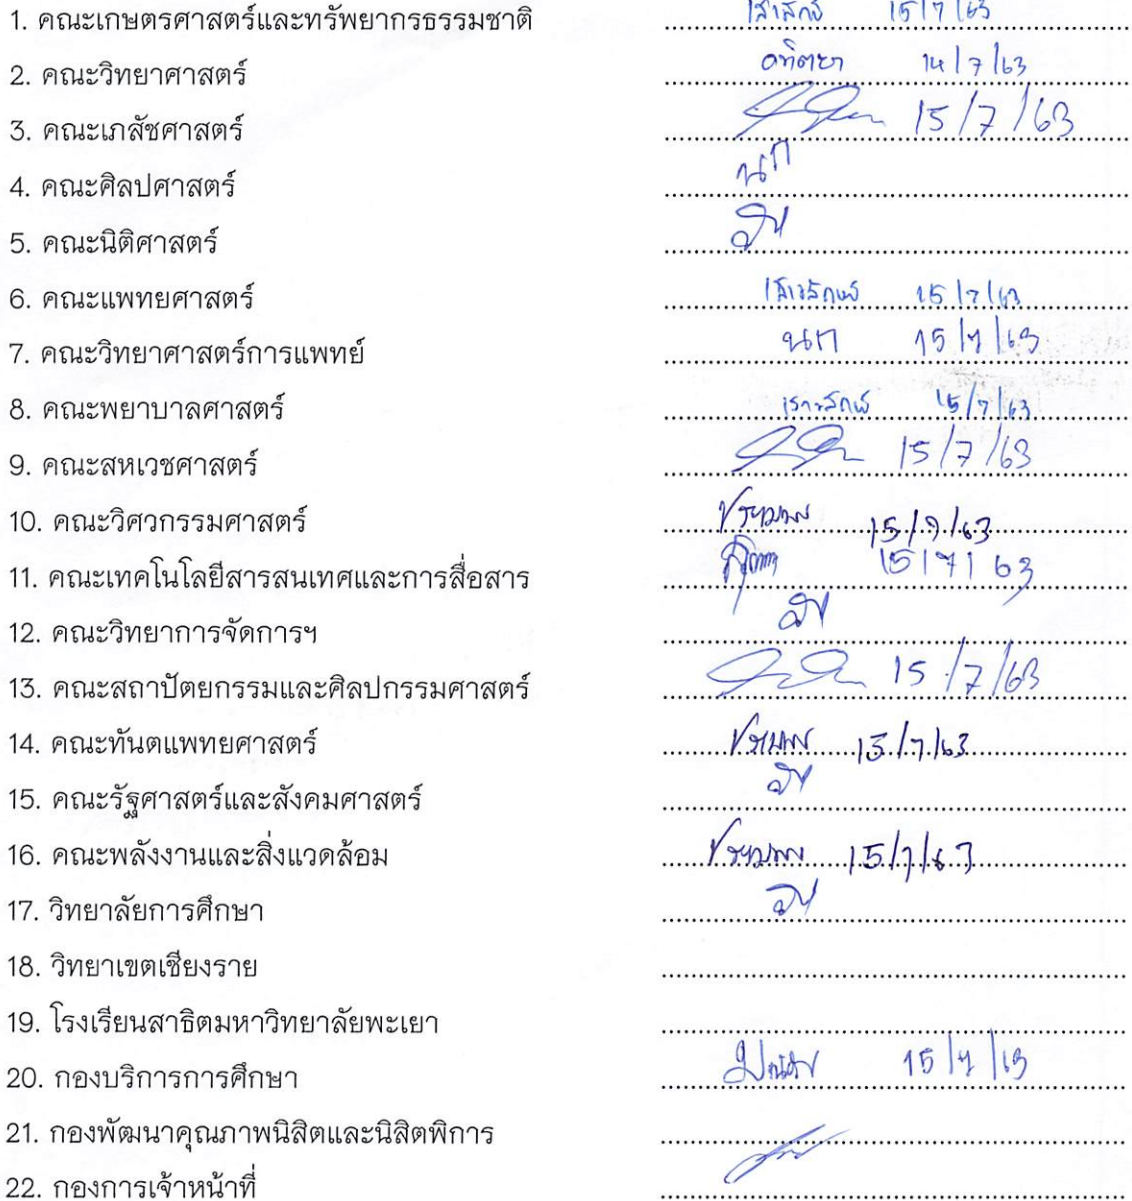 1. คณะเกษตรศาสตร์และทรัพยากรธรรมชาติ 15/7/63
2. คณะวิทยาศาสตร์ 14/7/63
3. คณะเภสัชศาสตร์ 15/7/63
4. คณะศิลปศาสตร์ นก
5. คณะนิติศาสตร์
6. คณะแพทยศาสตร์ เสาวลักษณ์ 15/7/63
7. คณะวิทยาศาสตร์การแพทย์ นก 15/7/63
8. คณะพยาบาลศาสตร์ 15/7/63
9. คณะสหเวชศาสตร์ 15/7/63
10. คณะวิศวกรรมศาสตร์ 15/7/63
11. คณะเทคโนโลยีสารสนเทศและการสื่อสาร 15/7/63
12. คณะวิทยาการจัดการฯ
13. คณะสถาปัตยกรรมและศิลปกรรมศาสตร์ 15/7/63
14. คณะทันตแพทยศาสตร์ 15/7/63
15. คณะรัฐศาสตร์และสังคมศาสตร์
16. คณะพลังงานและสิ่งแวดล้อม 15/7/63
17. วิทยาลัยการศึกษา
18. วิทยาเขตเชียงราย
19. โรงเรียนสาธิตมหาวิทยาลัยพะเยา
20. กองบริการการศึกษา 15/7/63
21. กองพัฒนาคุณภาพนิสิตและนิสิตพิการ
22. กองการเจ้าหน้าที่